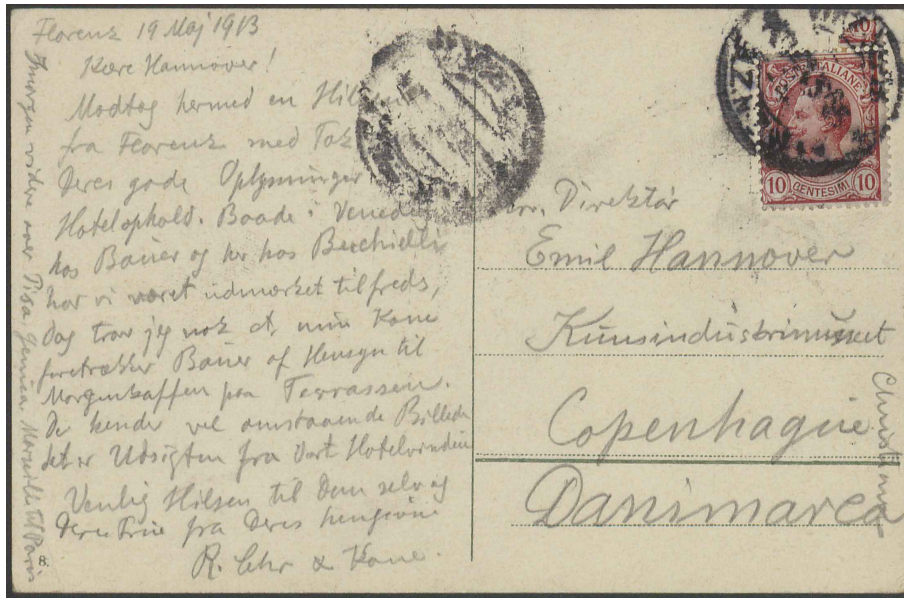 Florenz 19 Maj 1913
Kære Hannover!
Modtag hermed en Hilsen
fra Florenz med Tak
Deres gode Oplysninger
Hotelophold. Baade i Venedig
hos Bauer og her hos Becchielli
har vi været udmærket tilfreds,
Dog tror jeg nok at min Kone
foretrækker Bauer af Hensyn til
Morgenkaffen paa Terrassen.
De kender vel omstaaende Billede
det er Udsigten fra vort Hotelvindue
Venlig Hilsen til Dem selv og
Deres Frue fra Deres hengivne
R. & Kone.
Imorgen videre over Pisa Genua Marseille til Paris
8.
POSTE ITALIANE
10 CENTESIMI 10
Hr. Direktør
Emil Hannover
Kunsindustrimuseet
Copenhague
Danimarca